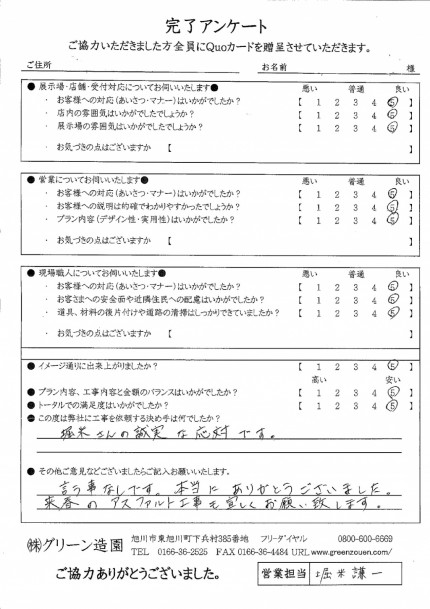 完了アンケート
ご協力いただきました方全員にQuoカードを贈呈させていただきます。
ご住所 お名前 様
● 展示場・店舗・受付対応についてお伺いいたします● 悪い 普通 良い
・ お客様への対応(あいさつ・マナー)はいかがでしたか? 【 1 2 3 4 5 】
・ 店内の雰囲気はいかがでしたでしょうか? 【 1 2 3 4 5 】
・ 展示場の雰囲気はいかがでしたでしょうか? 【 1 2 3 4 5 】
・ お気づきの点はございますか 【 】
● 営業についてお伺いいたします● 悪い 普通 良い
・ お客様への対応(あいさつ・マナー)はいかがでしたか? 【 1 2 3 4 5 】
・ お客様への説明は的確でわかりやすかったでしょうか? 【 1 2 3 4 5 】
・ プラン内容(デザイン性・実用性)はいかがでしたか? 【 1 2 3 4 5 】
・ お気づきの点はございますか 【 】
● 現場職人についてお伺いいたします● 悪い 普通 良い
・ お客様への対応(あいさつ・マナー)はいかがでしたか? 【 1 2 3 4 5 】
・ お客さまへの安全面や近隣住民への配慮はいかがでしたか? 【 1 2 3 4 5 】
・ 道具、材料の後片付けや道路の清掃はしっかりできていましたか? 【 1 2 3 4 5 】
・ お気づきの点はございますか 【 】
● イメージ通りに出来上がりましたか? 【 1 2 3 4 5 】
高い 安い
● プラン内容、工事内容と金額のバランスはいかがでしたか? 【 1 2 3 4 5 】
● トータルでの満足度はいかがでしたか? 【 1 2 3 4 5 】
● この度は弊社に工事を依頼する決め手は何でしたか?
堀米さんの誠実な応対です。
● その他ご意見などございましたらご記入お願いいたします。
言う事なしです。本当にありがとうございました。
来春のアスファルト工事も宜しくお願い致します。
㈱グリーン造園 旭川市東旭川町下兵村385番地 フリーダイヤル 0800-600-6669
TEL 0166-36-2525 FAX 0166-36-4484 URL www.greenzouen.com/
ご協力ありがとうございました。 営業担当 堀米謙一